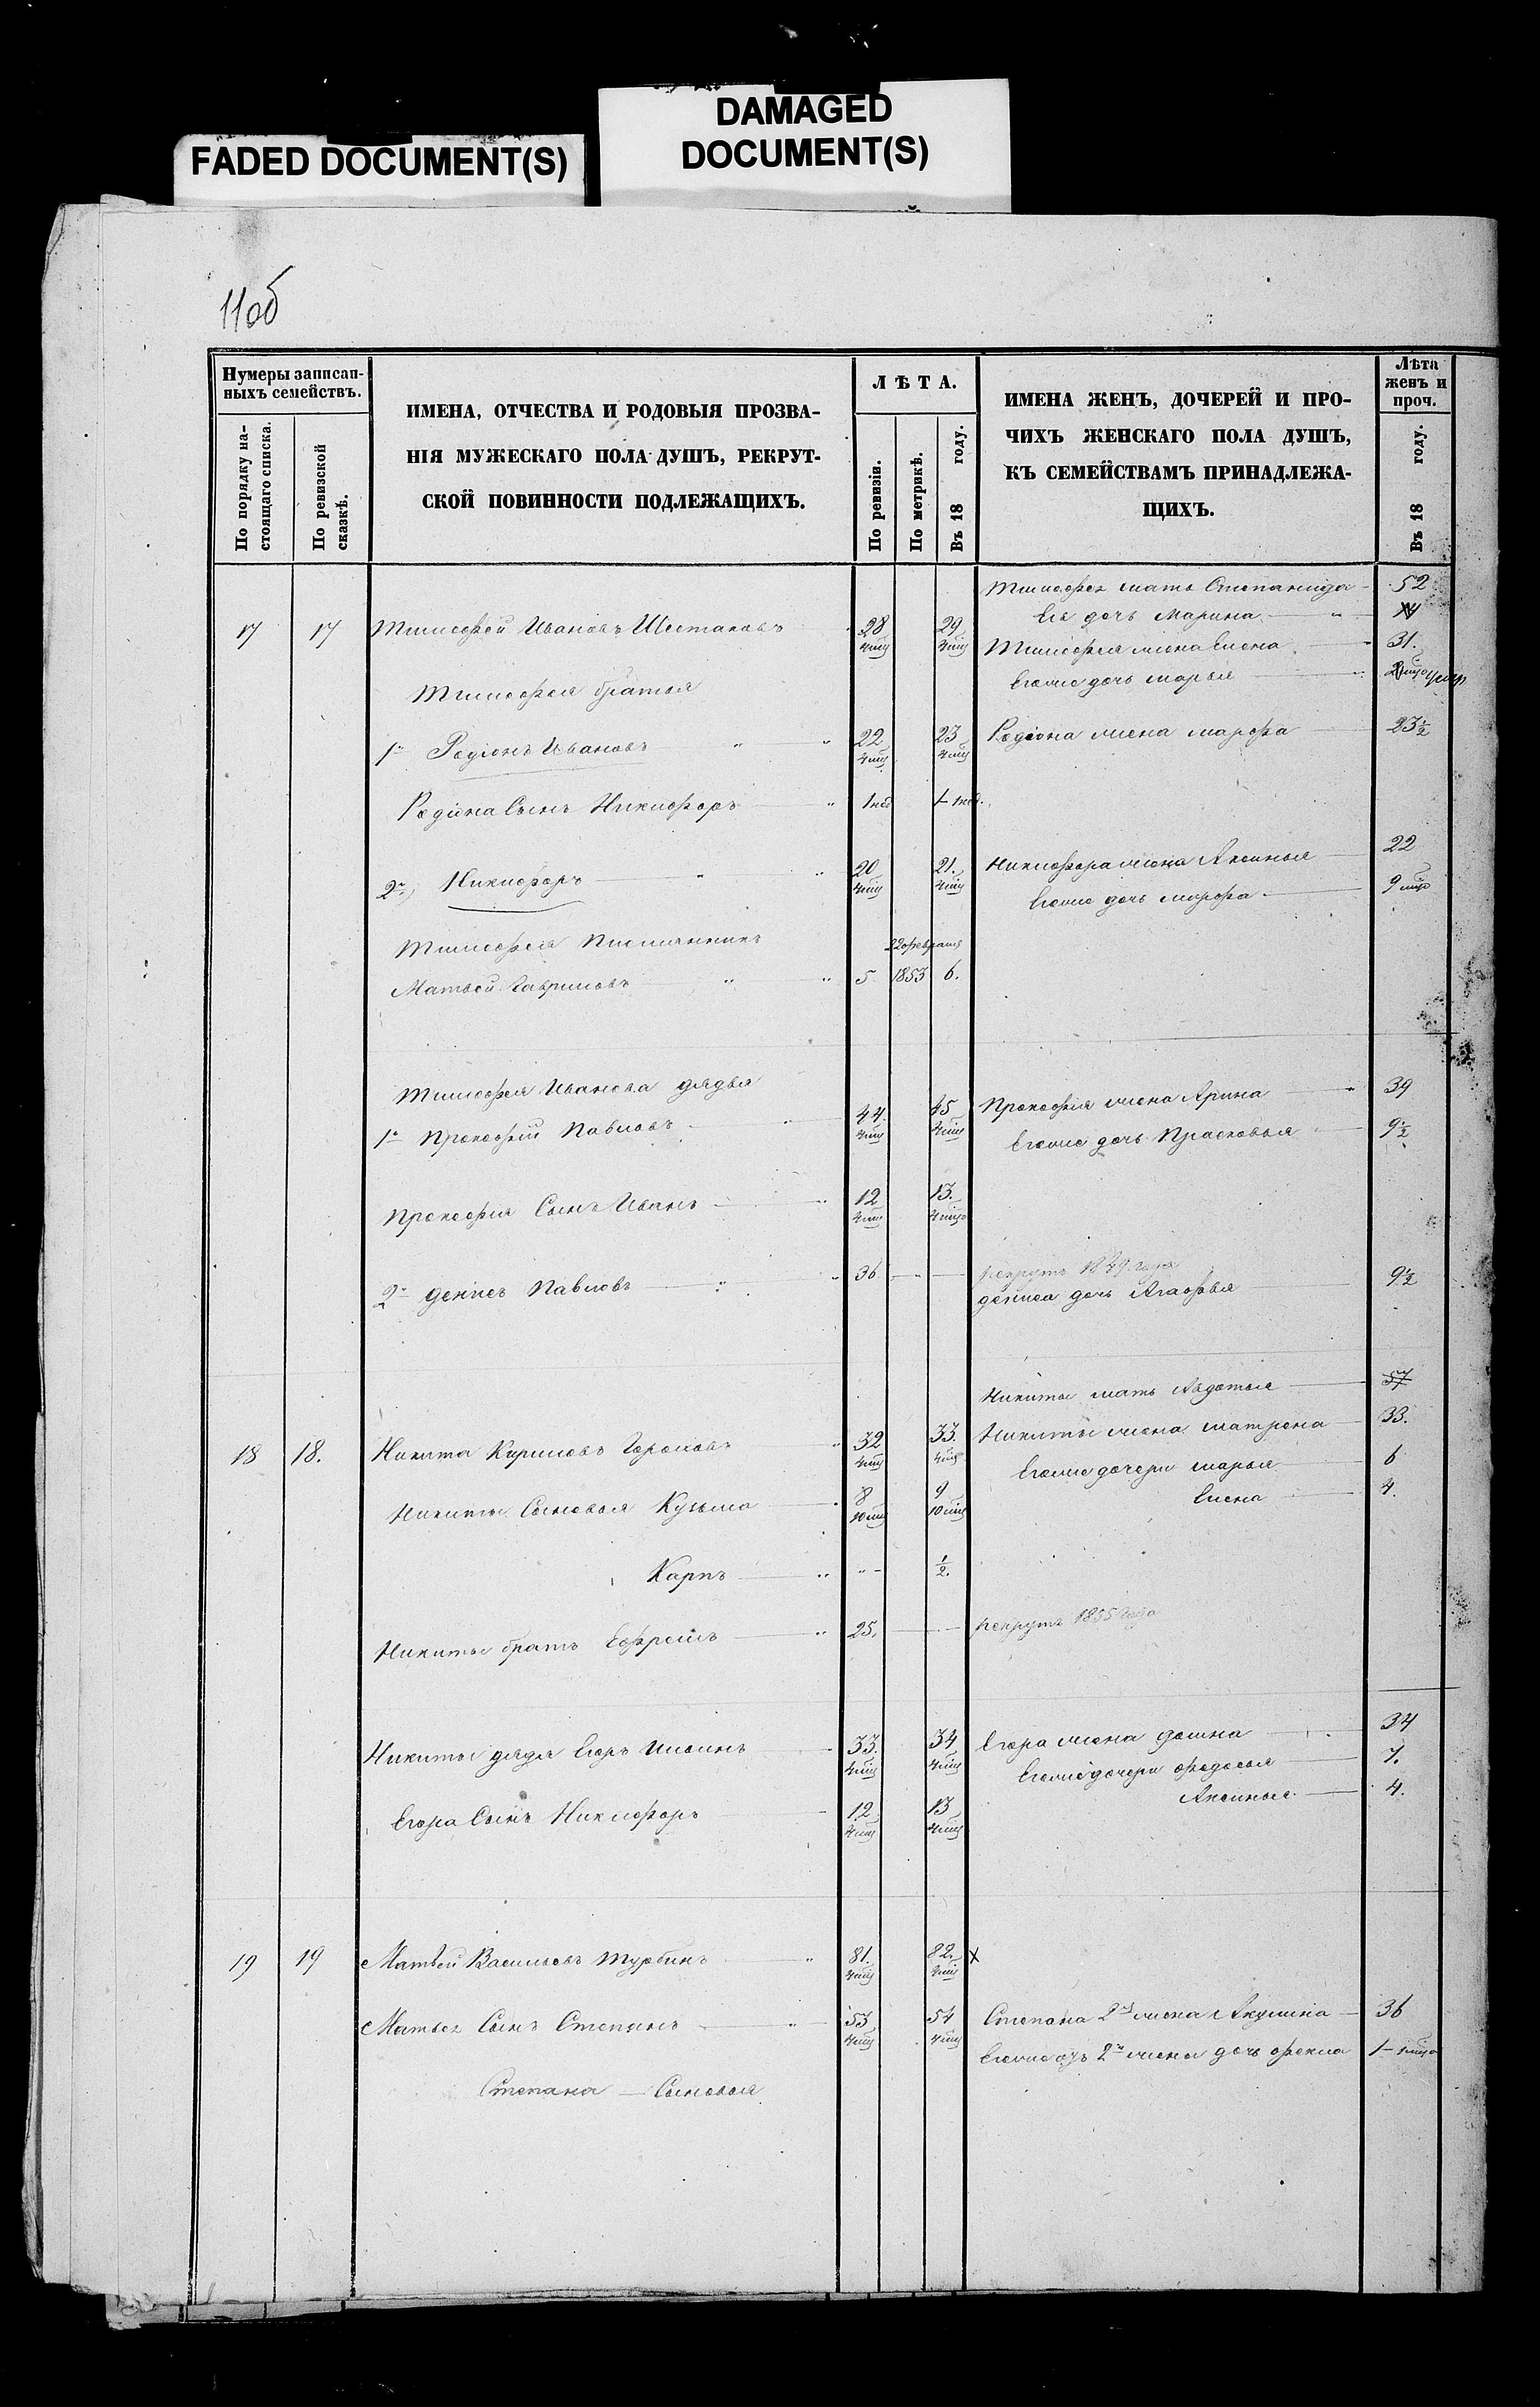 FADED DOCUMENT(S)
DAMAGED
DOCUMENT(S)
11об
Нумеры записан-
ныхъ семействъ.
По порядку на-
стоящаго списка.
По ревизской
сказкѣ.
ИМЕНА, ОТЧЕСТВА И РОДОВЫЯ ПРОЗВА-
НІЯ МУЖЕСКАГО ПОЛА ДУШЪ, РЕКРУТ-
СКОЙ ПОВИННОСТИ ПОДЛЕЖАЩИХЪ.
ЛѢТА.
По ревизіи.
По метрикѣ.
Въ 18 году.
ИМЕНА ЖЕНЪ, ДОЧЕРЕЙ И ПРО-
ЧИХЪ ЖЕНСКАГО ПОЛА ДУШЪ,
КЪ СЕМЕЙСТВАМЪ ПРИНАДЛЕЖА-
ЩИХЪ.
Лѣта
женъ и
проч.
Въ 18 году.
Тимофея мать Степанида 52
Ея дочь Марина
17 17 Тимофей Ивановъ Шестаковъ 28 29
Тимофея жена Елена 31.
Егоже дочь марья
Тимофея братья
1й Родіонъ Ивановъ 22 23 Родіона жена марфа 23½
Родіона Сынъ Никифоръ 1 нед 1 нед.
2й Никифоръ 20 21. Никифора жена Аксинья 22
Егоже дочь марфа 9
Тимофея Племянникъ 22 февраля
Матвей Гавриловъ 5 1853 6.
Тимофея Иванова дядья
1й Прокофий Павловъ 44. 45 Прокофія жена Арина 39
Егоже дочь Прасковья 9½
Прокофия Сынъ Иванъ 12 13.
2й денисъ Павловъ 36 рекрутъ 1849 года
дениса дочь Агафья 9½
Никиты мать Авдотья 57
18 18. Никита Кириловъ 32 33. Никиты жена матрена 33.
Егоже дочери марья 6
Никиты Сыновья Кузьма 8 9 Елена 4.
Карпъ ½.
Никиты братъ Ефремъ 25. рекрутъ 1855 года
Никиты дядя Егоръ 33. 34 Егора жена домна 34
Егоже дочери федосья 7.
Егора Сынъ Никифоръ 12 13 Аксинья 4.
19 19 Матвѣй Васильевъ Турбинъ 81. 82. х
Матвея Сынъ Степанъ 53 54 Степана 2я жена Акулина 36
Егоже отъ 2й жены дочь фекла 1
Степана Сыновья